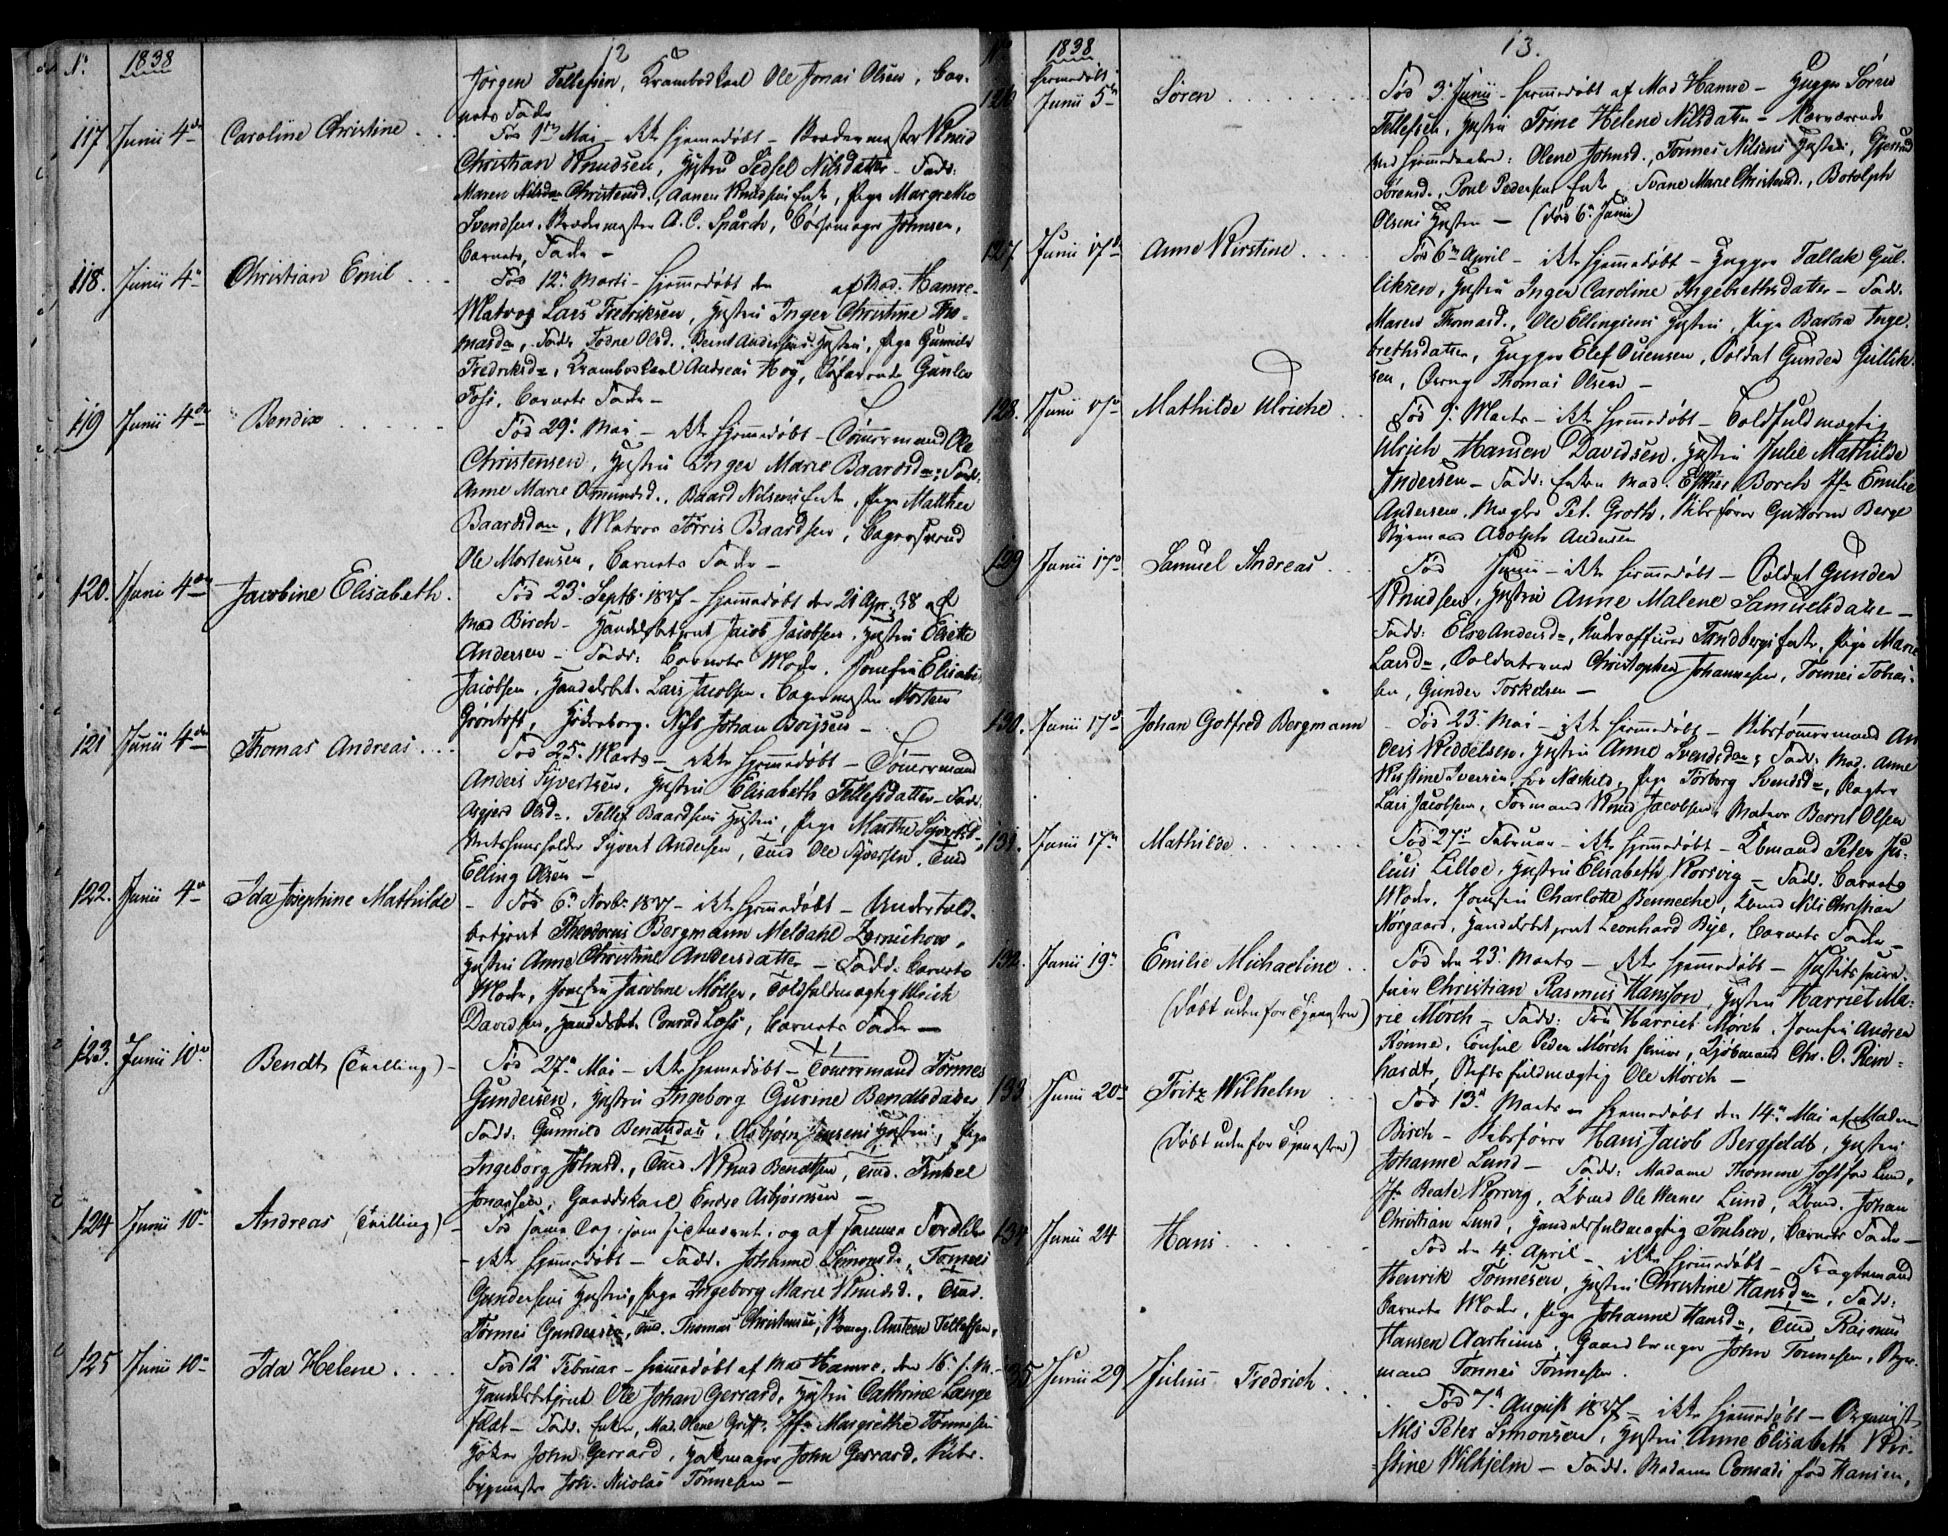 12
Nr. 1838
Jørgen Tellefsen, Krambodkarl Ole Jonas Olsen, Bar-
nets Fader
117 Junii 4de Caroline Christine
Fød 1ste Mai - ikke hjemmedøbt - Knud
Christian Knudsen, Hustru Sidsel Nilsdatter - Fadd:
Maren Christensd., Aanen Knudsens Enke, Pige Margrethe
Svendsen, A. C. Spärch, Johnsen,
Barnets Fader -
118. Junii 4de Christian Emil
Fød 12te Marti - hjemmedøbt den af Mad. Hamre -
Matros Lars Fredriksen, Hustru Inger Christine Tho-
masdn, Fadd: Todne Olsd., Bernt Andersens Hustru, Pige Gunnild
Fredriksdn, Krambodkarl Andreas Høg, Gunlev
Barnets Fader -
119 Junii 4de Bendix
Fød 29de Mai - ikke hjemmedøbt - Tømmermand Ole
Christensen, Hustru Inger Marie Baardsdn; Fadd:
Anne Marie Omundsd., Baard Nilsens Enke, Pige Malthea
Baardsdatter, Matros Torris Baardsen, Bagersvend
Ole Mortensen, Barnets Fader -
120. Juni 4de Jacobine Elisabeth
Fød 23de Septb: 1837 - hjemmedøbt den 21 Apr: 38 af
Mad Birch - Handelsbetjent Jacob Jacobsen, Hustru Elsette
Andersen - Fadd: Barnets Moder, Jomfru Elisabet
Jacobsen, Handelsbet. Lars Jacobsen, Bagermester Morten
Grøntoft, Nils Johan Boysen -
121 Junii 4de Thomas Andreas
Fød 25. Marts - ikke hjemmedøbt - Tømmermand
Anders Syvertsen, Hustru Elisabeth Tellefsdatter - Fadd:
Asgjerd Olsdn, Tellef Baardsens Hustru, Pige Marthe Syvertsd.,
Syvert Andersen, Tmd Ole Syversen, Tmd
Elling Olsen -
122. Junii 4de Ida Josephine Mathilde
Fød 6te Novb: 1837 - ikke hjemmedøbt - Undertold-
betjent Theodorus Bergmann Meldahl Zernichow,
Hustru Anne Christine Andersdatter - Fadd: Barnets
Moder, Jomfru Jacobine Møller, Toldfuldmægtig Ulrich
Davidsen, Handelsbet. Conrad Barnets Fader -
123. Junii 10de Bendt (Tvilling)
Fød 27de Mai - ikke hjemmedøbt - Tømmermand Tønnes
Gundersen, Hustru Ingeborg Gurine Bendtsdatter
Fadd: Gunnild Bendtsdatter, Asbjørn Jensens Hustru, Pige
Ingeborg Johnsd., Tmd Knud Bendtsen, Tmd. Finkel
Jonassen, Gaardskarl Endre Asbjørnsen -
124 Junii 10de Andreas (Tvilling)
Fød samme Dag, som sidstnævnte, og af samme Forældre
- ikke hjemmedøbt - Fadd: Johanne Simonsd., Tønnes
Gundersens Hustru, Pige Ingeborg Marie Knudsd., Tmd.
Tønnes Gundersen, Tmd. Thomas Christensen, Ansteen Tellefsen,
125 Junii 10de Ida Helene
Fød 12te Februar - hjemmedøbt af Mad Hamre, den 16. s. M. -
Handelsbetjent Ole Johan Gerrard, Hustru Cathrine Lange
feldt - Fadd: Enken, Mad. Olene Jfr Margrethe Tønnesen
Høker John Gerrard, John Gerrard, Skibs-
bygmester Joh. Nicolai Tønnesen -
13.
Nr 1838
126 hjemmedøbt Junii 5te Søren
Fød 3de Junii - hjemmedøbt af Mad Hamre - Hugger Søren
Tellefsen, Hustru Trine Helene Nilsdatter - Nærværende
ved Hjemmedaaben: Olene Johnsd., Tønnes Nilsens Hustru, Gjertrud
Sørensd., Poul Pedersens Enke, Svane Marie Christensd., Botolph
Olsens Hustru - (død 6te Junii)
127. Junii 17de Anne Kirstine
Fød 6te April - ikke hjemmedøbt - Hugger Tallak Gul-
liksen, Hustru Inger Caroline Ingebrethsdatter - Fadd:
Maren Thomasd., Ole Ellingsens Hustru, Pige Barbra Inge-
brethsdatter, Hugger Elef Ousensen, Soldat Gunder Gullik-
sen, Thomas Olsen -
128. Junii 17de Mathilde Ulriche
Fød 9de Marts - ikke hjemmedøbt - Toldfuldmægtig
Ulrich Hansen Davidsen, Hustru Julie Mathilde
Andersen - Fadd: Enken Mad. Esther Borch Jfr Emilie
Andersen, Mægler Pet. Groth, Skibsfører Guttorm Berge
Styrmand Adolph Andersen
129 Junii 17de Samuel Andreas
Fød Junii - ikke hjemmedøbt - Soldat Gunder
Knudsen, Hustru Anne Malene Samuelsdatter -
Fadd: Else Andersdn, Underofficer Strndbergs Enke, Pige Marie
Larsdn, Soldaterne Christopher Johannesen, Tønnes Tobias-
sen, Gunder Torkelsen -
130. Junii 17de Johan Gotfred Bergmann
Fød 23de Mai - ikke hjemmedøbt - Skibstømmermand An-
ders Kiddelsen, Hustru Anne Svendsdn; Fadd: Mad. Anne
Kirstine Iversen, Pige Torborg Svendsdn, Slagter
Lars Jacobsen, Formand Knud Jacobsen, Matros Bernt Olsen
131. Junii 17de Mathilde
Fød 27de Februar - ikke hjemmedøbt - Kbmand Peter Ju-
lius Lilloe, Hustru Elisabeth Korsvig - Fadd: Barnets
Moder, Jomfru Charlotte Benneche, Kbmd Nils Christian
Nørgaard, Handelsbetjent Leonhard Bye, Barnets Fader -
132. Junii 19de Emilie Michaeline
(døbt uden for Tjenesten)
Fød den 23de Marts - ikke hjemmedøbt - Justitssecre-
tair Christian Rasmus Hansson, Hustru Harriet Ma-
rie Mørch - Fadd: Fru Harriet Mørch, Jomfru Andrea
Rønne, Consul Peder Mørch senior, Kjøbmand Chr. O. Rein-
hardt, Stiftsfuldmægtig Ole Mørch -
133 Junii 20de Fritz Wilhelm
(døbt uden for Tjenesten)
Fød 13de Marts - hjemmedøbt den 14de Mai af Madm
Birch - Skibsfører Hans Jacob Bergfeldt, Hustru
Johanne Lund - Fadd: Madame Thomine født Lund,
Jfr Beate Korsvig, Kbmd Ole Werner Lund, Kbmd. Johan
Christian Lund, Handelsfuldmægtig Poulsen, Barnets Fader -
134 Junii 24 Hans
Fød den 4de April - ikke hjemmedøbt - Fragtemand
Henrik Tønnesen, Hustru Christine Hansdn, Fadd:
Barnets Moder, Pige Johanne Hansdn, Tmd Rasmus
Hansen Aarhuus, Gaardbruger John Tønnesen, Styr-
mand Tønnes Tønnesen.
135 Junii 29 Julius Fredrich
Fød 7de August 1837 - ikke hjemmedøbt - Organist
Nils Peter Simonsen, Hustru Anne Elisabeth Kir-
stine Wilhjelm - Fadd: Madame Conradi født Hansen,